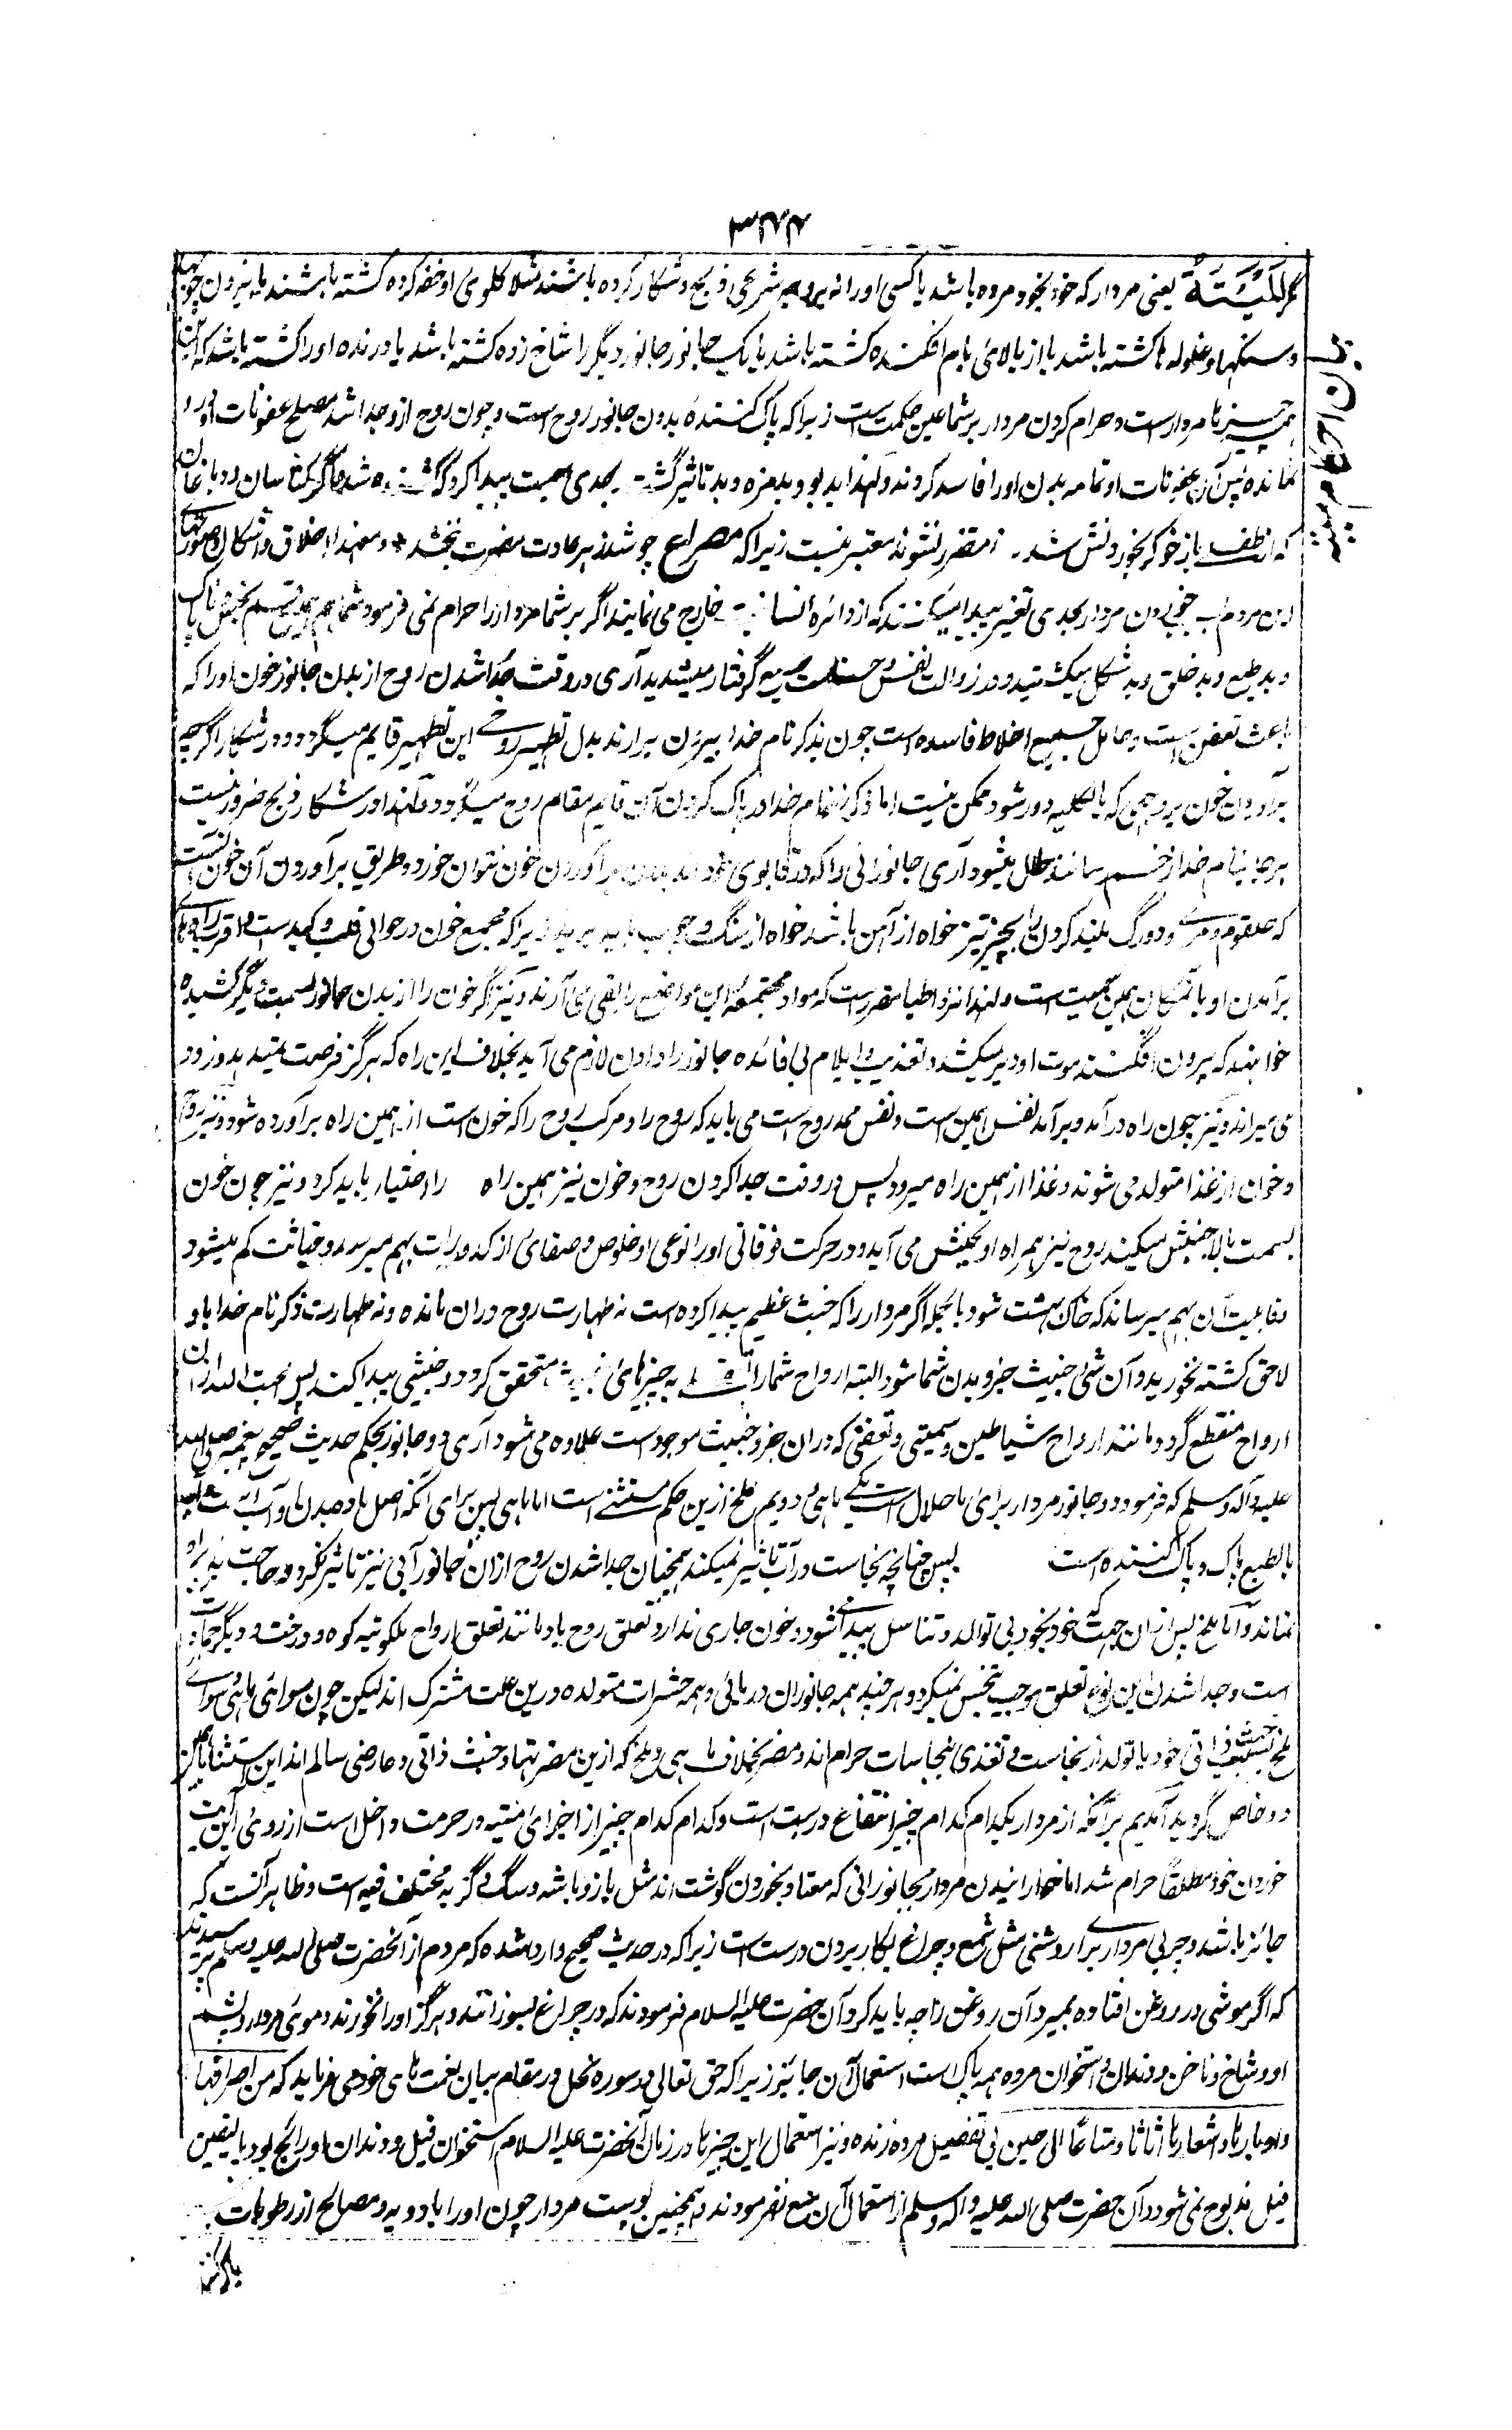 مگر المیتة یعنی مردار که خود بخود مرده باشد یا کسی او را نه بروجه شرعی ذبح و شکار کرده باشند مثلا گلوی او خفه کرده کشته باشند یا بزدن چوبها
و سنگها و غلوله ها کشته باشد یا از بالای بام افگنده کشته باشد یا یک جانور جانور دیگر را شاخ زده کشته باشد یا درنده او را کشته باشد که این
همه چیزها مردار است و حرام کردن مردار بر شما عین حکمت است زیرا که پاک کننده بدن جانور روح است و چون روح ازو جدا شد مصلح عفونات او
نمانده پس آن عفونات او تمامه بدن او را فاسد کردند و لهذا بدبو و بدمزه و بدتاثیر گشت بحدی سمیت پیدا کرد که
که از طفلی باز خوگر بخوردنش شد متضرر نشوند معتبر نیست زیرا که مصراع چو شد زهر عادت مضرت نبخشد و معهذا اخلاق و اشکال و صورتهای
این مردم بسبب خوردن مردار بحدی تغیر پیدا میکنند که از دائره انسانیت خارج می نمایند اگر بر شما مردار را حرام نمی فرمود شما هم همین قسم نجس ناپاک
و بد طبع و بد خلق و بد شکل میگشتید و در رذالت نفس و خساست گرفتار میشدید آری در وقت جدا شدن روح از بدن جانور خون او را که
باعث تعفن است و حامل جمیع اخلاط فاسده است چون بذکر نام خدا بیرون برآرند بدل تطهیر روحی این تطهیر قایم میگردد و در شکار اگرچه
برآوردن خون بروجهی که بالکلیه دور شود ممکن نیست اما ذکر نام خدا در پاک کردن آن قایم مقام روح میگردد و لهذا در شکار ذبح ضرور نیست
هرجا بنام خدا زخم رسانند حلال میشود آری جانورانی را که در قابوی خود اند بدون برآوردن خون نتوان خورد و طریق برآوردن آن خون آنست
که حلقوم و مری و دو رگ بلند کردن را بچیز تیز خواه از آهن باشد خواه از سنگ و چوب باید برید زیرا که مجمع خون در حوالی قلب و کبد است و اقرب راه
برآمدن او باتمکان همین سمت است و لهذا نزد اطبا مقرر است که مواد مجتمعه این مواضع را بقی می آرند و نیز اگر خون را از بدن جانور بسمت دیگر کشیده
خواهند که بیرون افگنند موت او دیر میکشد و تعذیب و ایلام بی فائده جانور را دادن لازم می آید بخلاف این راه که هرگز فرصت نمیدهد و زود
می میراند و نیز چون راه درآمد و برآمد نفس همین است و نفس ممد روح است می باید که روح را و مرکب روح را که خون است از همین راه برآورده شود و نیز روح
و خون از غذا متولد می شوند و غذا از همین راه میرود پس در وقت جدا کردن روح و خون نیز همین راه را اختیار باید کرد و نیز چون خون
بسمت بالا جنبش میکند روح نیز همراه او بجنبش می آید و در حرکت فوقانی او را نوعی از خلوص و صفای از کدورات بهم میرسد و خباثت کم میشود
و قابلیت آن بهم میرساند که خاک بهشت شود بالجمله اگر مردار را که خبث عظیم پیدا کرده است نه طهارت روح دران مانده و نه طهارت ذکر نام خدا باو
لاحق گشته بخورید و آن شی خبیث جزو بدن شما شود البته ارواح شما را به چیزهای خبیث متحقق گردد و خبثی پیدا کند پس محبت الله از آن
ارواح منقطع گردد مانند ارواح شیاطین و سمیتی و تعفنی که دران جزو خبیث موجود است علاوه می شود آری دو جانور بحکم حدیث صحیح پیغمبر صلی الله
علیه و آله و سلم که فرمود دو جانور مردار برای ما حلال است یکی ماهی و دویم ملخ ازین حکم مستثنی است اما ماهی پس برای آنکه اصل ماده بدن او آب است و آب
بالطبع پاک و پاک کننده است پس چنانچه نجاست در آب تاثیر نمیکند همچنان جدا شدن روح ازان جانور آبی نیز تاثیر نکرد و حاجت بذبح او
نماند و اما ملخ پس ازان جهت که خود بخود بی توالد و تناسل پیدا میشود و خون جاری ندارد و تعلق روح باو مانند تعلق ارواح ملکوتیه کوه و درخت و دیگر جمادات
است و جدا شدن این نوع تعلق موجب تنجس نمیگردد و هرچند همه جانوران دریائی و همه حشرات متولده درین علت مشترک اند لیکن چون سوای ماهی و سوای
ملخ بسبب خبث ذاتی خود یا تولد از نجاست و تغذی بنجاسات حرام اند و مضر بخلاف ماهی و ملخ که ازین مضرتها و خبث ذاتی و عارضی سالم اند این استثنا باین
دو خاص گردید آمدیم برآنکه از مردار بکدام کدام چیز انتفاع درست است و کدام کدام چیز از اجزای میته در حرمت داخل است از روی این آیت
خوردن خود مطلقا حرام شد اما خورانیدن مردار بجانورانی که معتاد بخوردن گوشت اند مثل باز و باشه و سگ و گربه مختلف فیه است و ظاهر آنست که
جائز باشد و چربی مردار برای روشنی مثل شمع و چراغ بکار بردن درست است زیرا که در حدیث صحیح وارد شده که مردم از آنحضرت صلی الله علیه و سلم پرسیدند
که اگر موشی در روغن افتاده بمیرد آن روغن را چه باید کرد آن حضرت علیه السلام فرمودند که در چراغ بسوزانند و هرگز او را نخورند و موی مردار و پشم
او و شاخ و ناخن و دندان و استخوان مرده همه پاک است استعمال آن جایز زیرا که حق تعالی در سوره نحل در مقام بیان نعمت های خود می فرماید که من اصوافها
و اوبارها و اشعارها اثاثا و متاعا الی حین بی تفصیل مرده و زنده و نیز استعمال این چیزها در زمان آنحضرت علیه السلام استخوان فیل و دندان او رائج بود بالیقین
فیل مذبوح نمی شود و آن حضرت صلی الله علیه و آله و سلم از استعمال آن منع نفرمودند و همچنین پوست مردار چون او را بادویه و مصالح از رطوبات